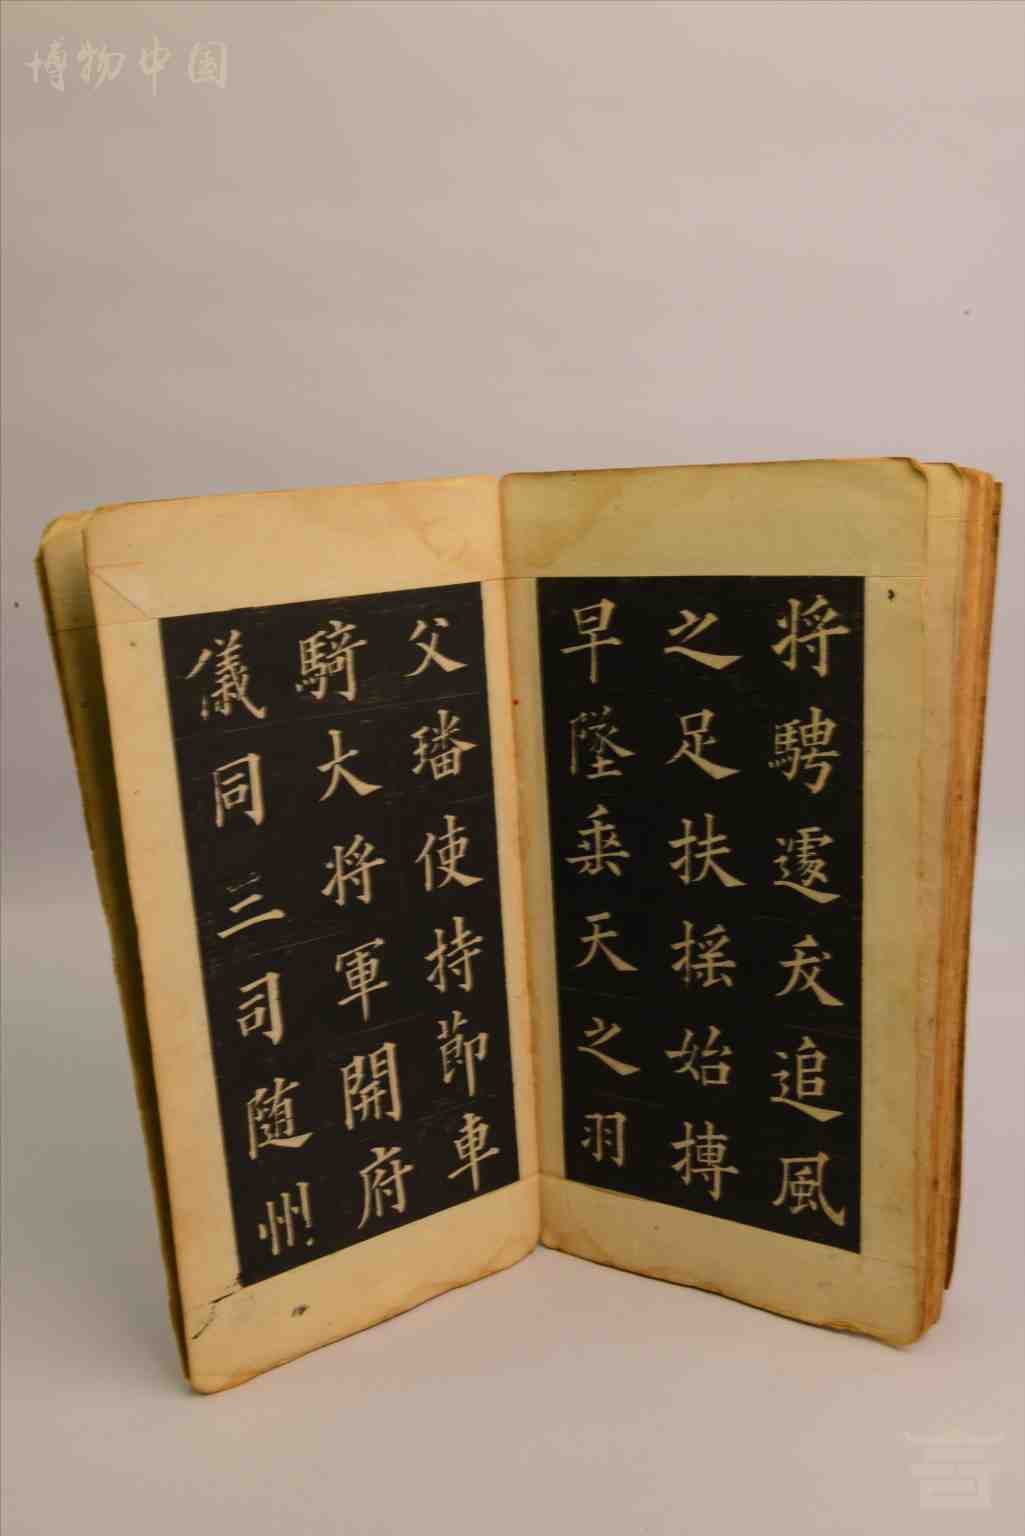 博物中国
将騁邃叐追風
之足扶摇始摶
早墜乗天之羽
父璠使持節車
騎大将軍開府
儀同三司随州